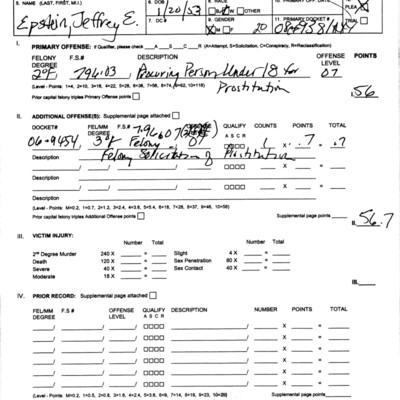 5. NAME (LAST, FIRST, M.I.) 6. DOB 8. RACE
Epstein, Jeffrey E. 1/20/53 B W OTHER PLEA
7. DC # 9. GENDER 11. PRIMARY DOCKET #
M F 20 TRIAL
I. PRIMARY OFFENSE: If Qualifier, please check A S C R (A=Attempt, S=Solicitation, C=Conspiracy, R=Reclassification)
FELONY F.S.# DESCRIPTION OFFENSE POINTS
DEGREE LEVEL
2°F 796.03 Procuring Person Under 18 for 07
Prostitution 56
(Level - Points: 1=4, 2=10, 3=16, 4=22, 5=28, 6=36, 7=56, 8=74, 9=92, 10=116)
Prior capital felony triples Primary Offense points
II. ADDITIONAL OFFENSE(S): Supplemental page attached
DOCKET# FEL/MM F.S.# OFFENSE QUALIFY COUNTS POINTS TOTAL
DEGREE 796.07 A S C R
06-9454, 3°F 07 1 X .7 = .7
Description Felony Solicitation of Prostitution
Description
Description
(Level - Points: M=0.2, 1=0.7, 2=1.2, 3=2.4, 4=3.6, 5=5.4, 6=18, 7=28, 8=37, 9=46, 10=58)
Prior capital felony triples Additional Offense points Supplemental page points
II. 56.7
III. VICTIM INJURY:
Number Total Number Total
2nd Degree Murder 240 X = Slight 4 X =
Death 120 X = Sex Penetration 80 X =
Severe 40 X = Sex Contact 40 X =
Moderate 18 X =
III.
IV. PRIOR RECORD: Supplemental page attached
FEL/MM F.S.# OFFENSE QUALIFY DESCRIPTION NUMBER POINTS TOTAL
DEGREE LEVEL A S C R
X =
X =
X =
X =
X =
X =
X =
X =
(Level - Points: M=0.2, 1=0.5, 2=0.8, 3=1.6, 4=2.4, 5=3.6, 6=9, 7=14, 8=19, 9=23, 10=29)